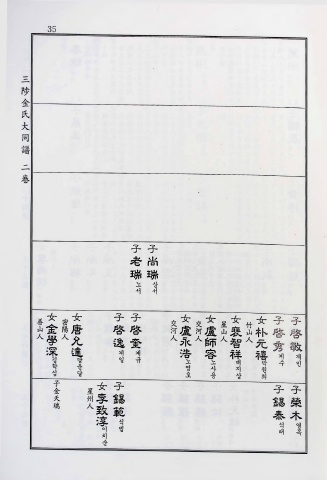 35
三陟金氏大同譜 二卷
子尚瑞상서
子老瑞노서
子啓敏계민
子啓秀계수
女朴元禧박원희
竹山人
女裵智祥배지상
星山人
女盧師容노사용
交河人
女盧永浩노영호
交河人
子啓奎계규
子啓逸계일
女唐允達당윤달
密陽人
女金學深김학심
善山人
子榮木영목
子錫泰석태
子錫範석범
女李致淳이치순
星州人
子金天驥